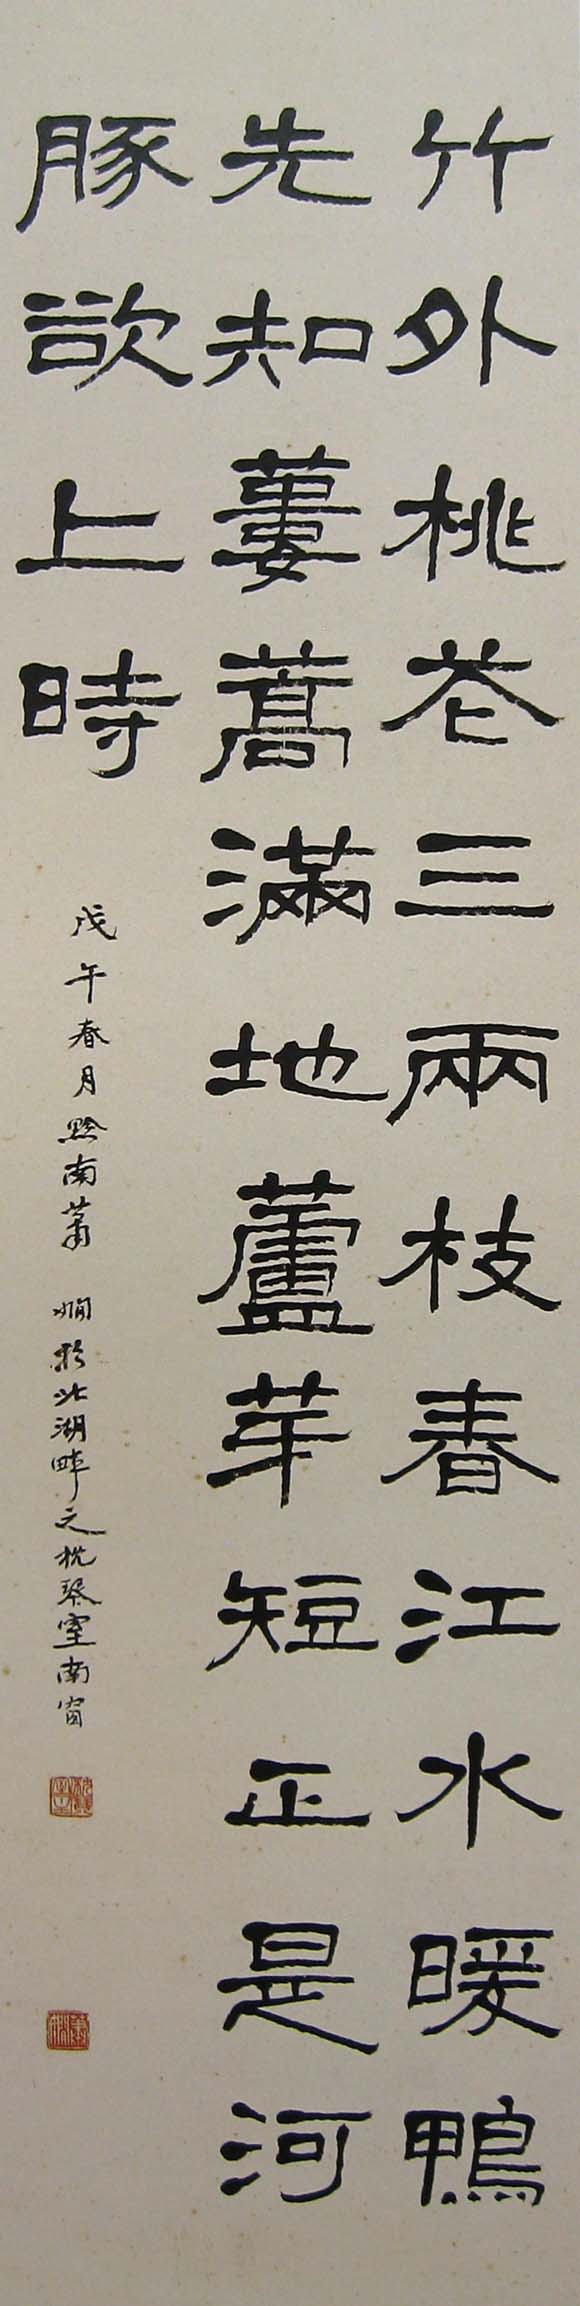 竹外桃花三兩枝春江水暖鴨
先知蔞蒿滿地蘆芽短正是河
豚欲上時
戊午春月黔南蕭 嫻於北湖畔之枕琴室南窗
枕琴室
蕭嫻